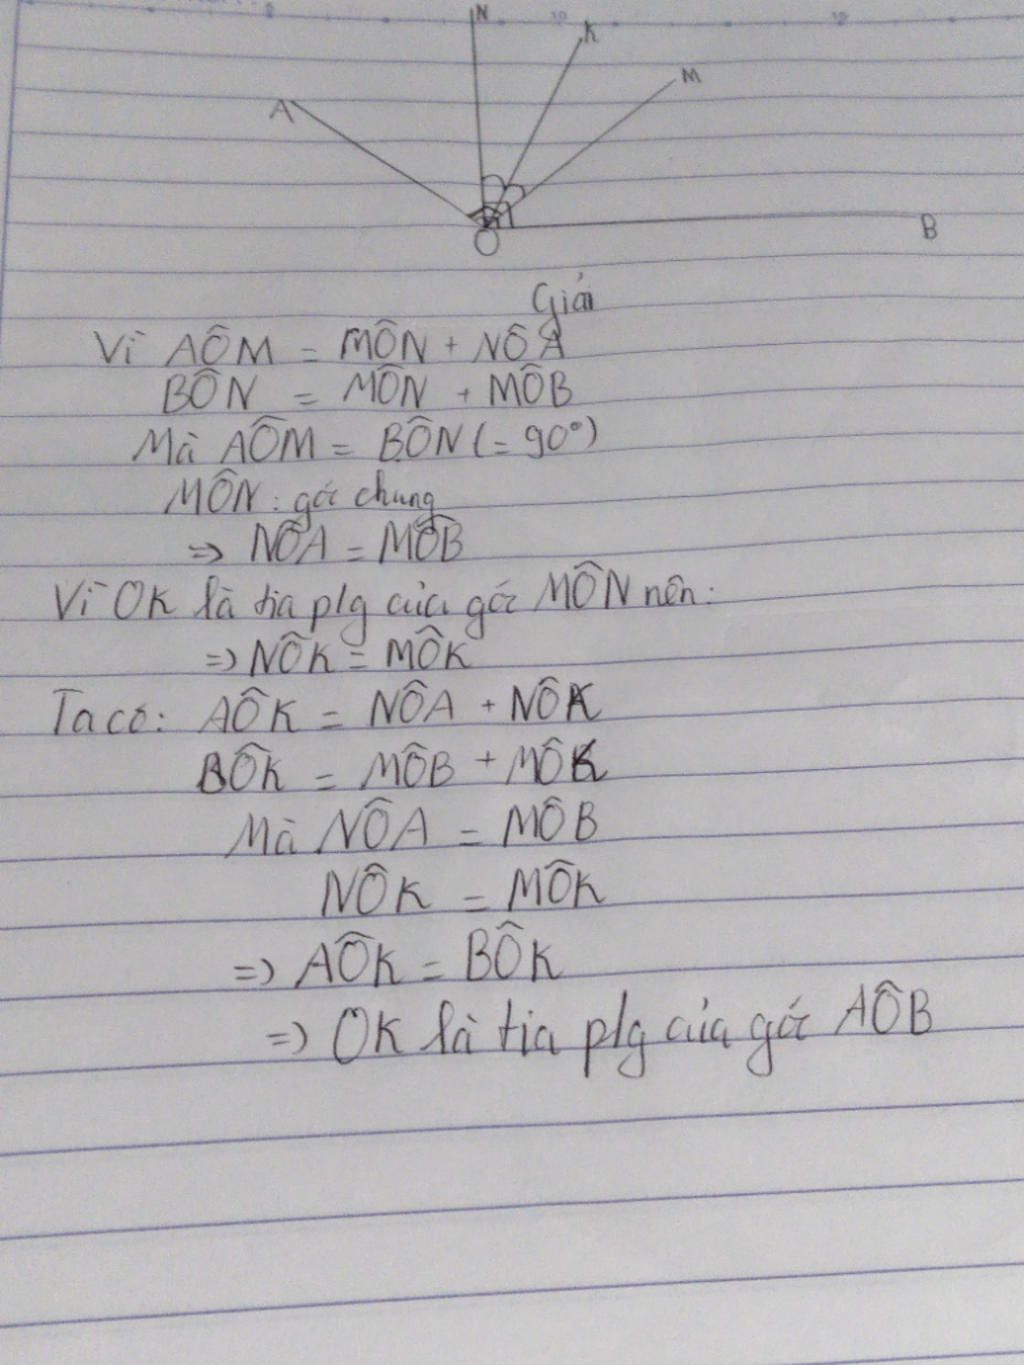 N
K
M
A
O
B
Giải
Vì AÔM = MÔN + NÔA
BÔN = MÔN + MÔB
Mà AÔM = BÔN (= 90°)
MÔN : góc chung
=> NÔA = MÔB
Vì OK là tia plg của góc MÔN nên:
=> NÔK = MÔK
Ta có: AÔK = NÔA + NÔK
BÔK = MÔB + MÔK
Mà NÔA = MÔB
NÔK = MÔK
=> AÔK = BÔK
=> OK là tia plg của góc AÔB